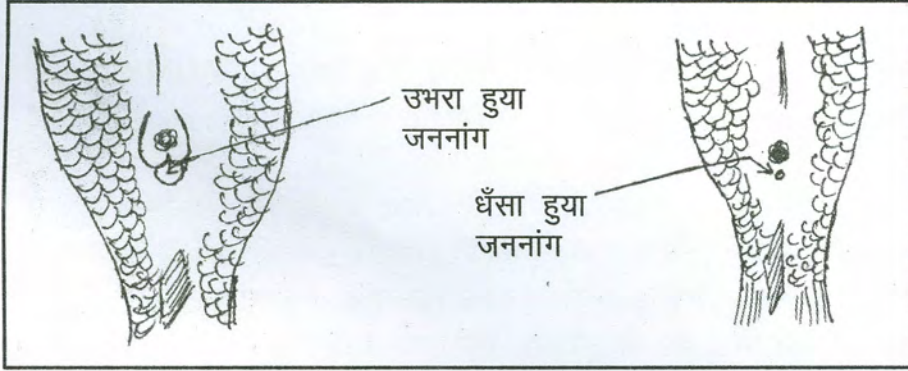 उभरा हुया
जननांग
धँसा हुया
जननांग